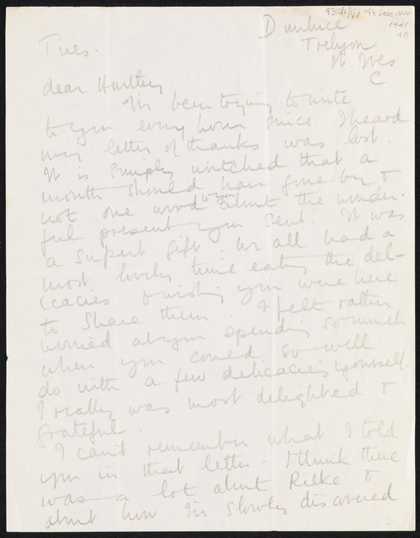 Tues.
dear Hartley
I've been trying to write
to you every hour since I heard
my letter of thanks was lost.
It is simply wretched that a
month should have gone by &
not one word about the wonder-
ful present you sent. It was
a superb gift. We all had a
most lovely time eating the del-
icacies & wishing you were here
to share them. I felt rather
worried at your spending so much
when you could so well
do with a few delicacies yourself.
I really was most delighted &
grateful.
I can't remember what I told
you in that letter. I think there
was a lot about Rilke &
about how I'd slowly discovered